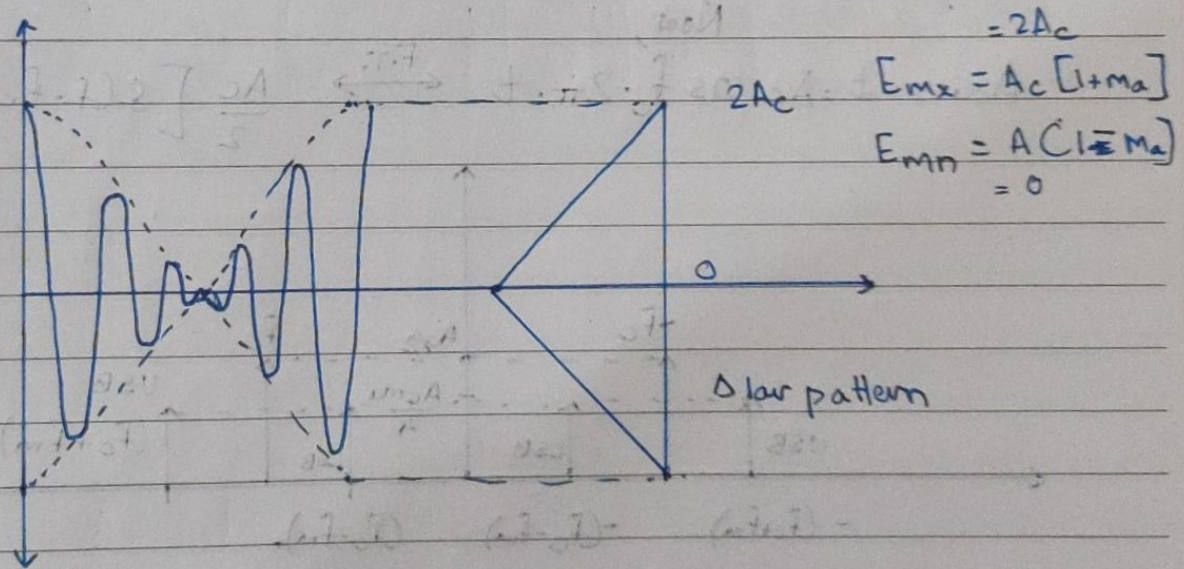 = 2Ac
Emx = Ac [1+ma]
2Ac
Emn = A(1-ma]
= 0
0
Δlar pattern